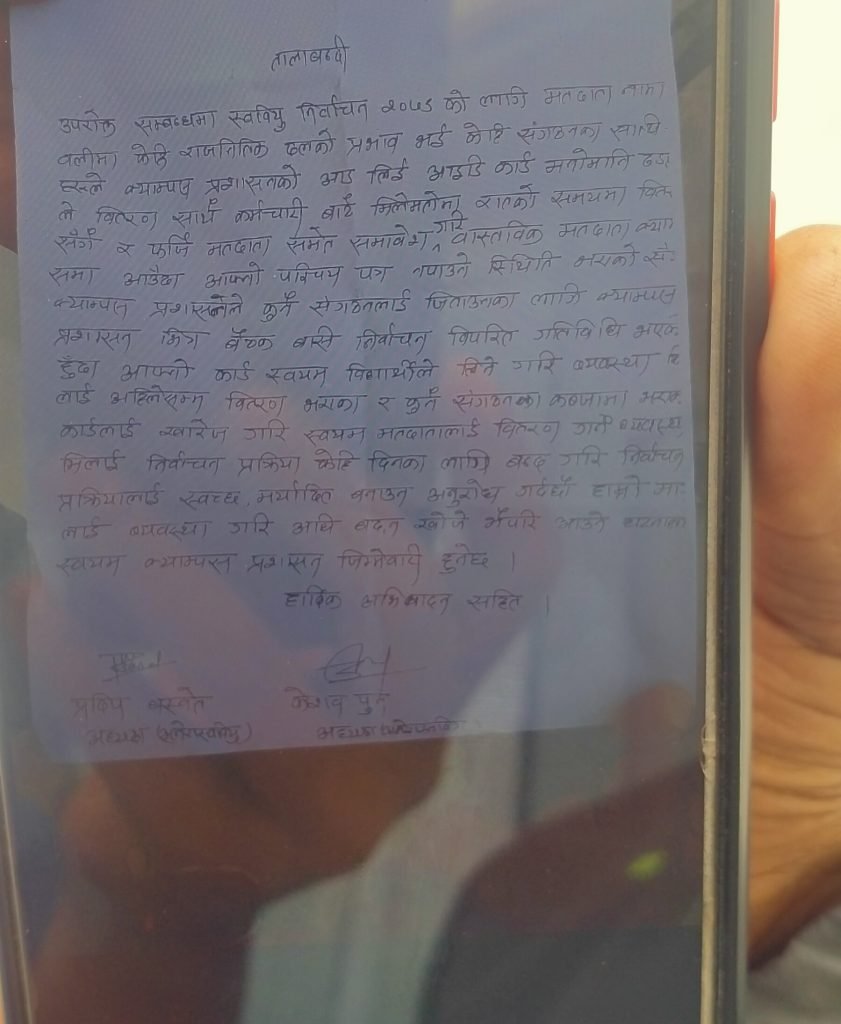 तालाबन्दी
उपरोक्त सम्बन्धमा स्ववियु निर्वाचन २०७९ को लागि मतदाता नामा
वलीमा केहि राजनितिक दलको प्रभाव भई केहि संगठनका साथि
हरुले क्याम्पस प्रशासनको आड लिई आइडि कार्ड मनोमानि ढङ्ग
ले वितरण साथै कर्मचारी बाटै मिलेमतोमा रातको समयमा वित
र फर्जि मतदाता समेत समावेश गरि वास्तविक मतदाता क्या
समा आउँदा आफ्नो परिचय पत्र नपाउने स्थिति भएको
क्याम्पस प्रशासनले कुनै संगठनलाई जिताउनका लागि क्याम्पस
प्रशासन भित्र बैठक बासी निर्वाचन विपरित गतिविधि भएक
हुँदा आफ्नो कार्ड स्वयम विद्यार्थीले लिने गरि व्यवस्था
लाई अहिलेसम्म वितरण भएका र कुनै संगठनका कब्जामा भएक
कार्डलाई खारेज गरि स्वयम मतदातालाई वितरण गर्ने व्यवस्था
मिलाई निर्वाचन प्रक्रिया केहि दिनका लागि बन्द गरि निर्वाचन
प्रक्रियालाई स्वच्छ, मर्यादित बनाउन अनुरोध गर्दछौं हाम्रो मा
लाई व्यवस्था गरि अघि बढ्न खोजे भैपरि आउने घटनाका
स्वयम क्याम्पस प्रशासन जिम्मेवारी हुनेछ ।
हार्दिक अभिवादन सहित ।
प्रदिप बस्नेत केशव पुन
अध्यक्ष अध्यक्ष